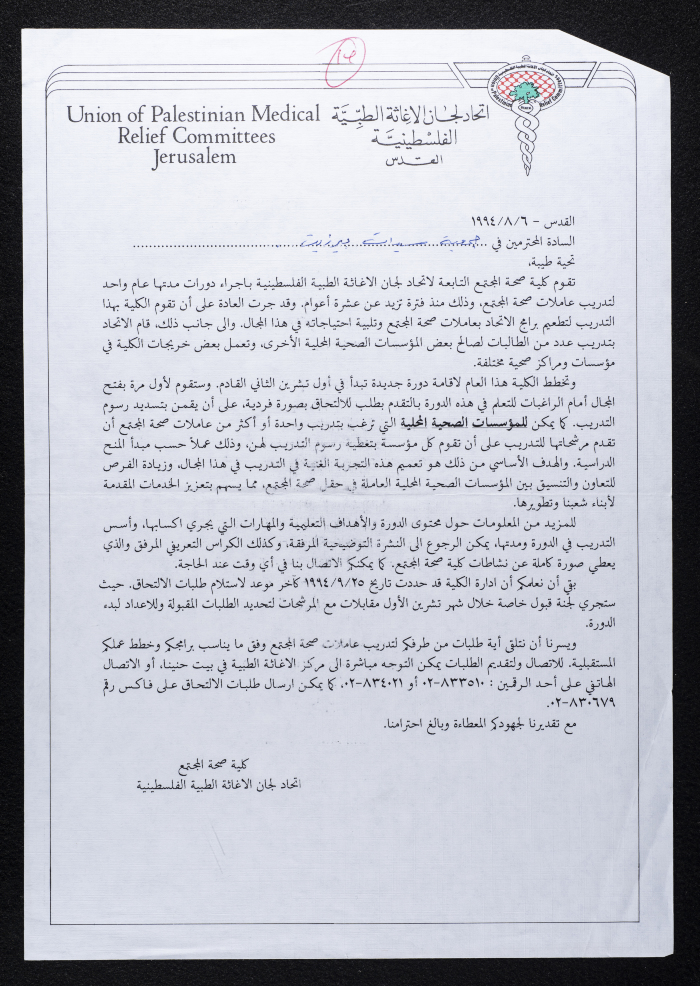 ١٤
Union of Palestinian Medical
Relief Committees
Jerusalem
اتحاد لجان الإغاثة الطبيّة
الفلسطينيّة
القدس
القدس - ١٩٩٤/٨/٦
السادة المحترمين في ... جمعية سيدات بيرزيت ...
تحية طيبة،
تقوم كلية صحة المجتمع التابعة لاتحاد لجان الاغاثة الطبية الفلسطينية باجراء دورات مدتها عام واحد
لتدريب عاملات صحة المجتمع، وذلك منذ فترة تزيد عن عشرة أعوام. وقد جرت العادة على أن تقوم الكلية بهذا
التدريب لتطعيم برامج الاتحاد بعاملات صحة المجتمع وتلبية احتياجاته في هذا المجال. والى جانب ذلك، قام الاتحاد
بتدريب عدد من الطالبات لصالح بعض المؤسسات الصحية المحلية الأخرى، وتعمل بعض خريجات الكلية في
مؤسسات ومراكز صحية مختلفة.
وتخطط الكلية هذا العام لاقامة دورة جديدة تبدأ في أول تشرين الثاني القادم. وستقوم لأول مرة بفتح
المجال أمام الراغبات للتعلم في هذه الدورة بالتقدم بطلب للالتحاق بصورة فردية، على أن يقمن بتسديد رسوم
التدريب. كما يمكن للمؤسسات الصحية المحلية التي ترغب بتدريب واحدة أو أكثر من عاملات صحة المجتمع أن
تقدم مرشحاتها للتدريب على أن تقوم كل مؤسسة بتغطية رسوم التدريب لهن، وذلك عملاً حسب مبدأ المنح
الدراسية. والهدف الأساسي من ذلك هو تعميم هذه التجربة الغنية في التدريب في هذا المجال، وزيادة الفرص
للتعاون والتنسيق بين المؤسسات الصحية المحلية العاملة في حقل صحة المجتمع، مما يسهم بتعزيز الخدمات المقدمة
لأبناء شعبنا وتطويرها.
للمزيد من المعلومات حول محتوى الدورة والأهداف التعليمية والمهارات التي يجري اكسابها، وأسس
التدريب في الدورة ومدتها، يمكن الرجوع الى النشرة التوضيحية المرفقة، وكذلك الكراس التعريفي المرفق والذي
يعطي صورة كاملة عن نشاطات كلية صحة المجتمع. كما يمكنكم الاتصال بنا في أي وقت عند الحاجة.
بقي أن نعلمكم أن ادارة الكلية قد حددت تاريخ ١٩٩٤/٩/٢٥ كآخر موعد لاستلام طلبات الالتحاق. حيث
ستجري لجنة قبول خاصة خلال شهر تشرين الأول مقابلات مع المرشحات لتحديد الطلبات المقبولة وللاعداد لبدء
الدورة.
ويسرنا أن نتلقى أية طلبات من طرفكم لتدريب عاملات صحة المجتمع وفق ما يناسب برامجكم وخطط عملكم
المستقبلية. للاتصال ولتقديم الطلبات يمكن التوجه مباشرة الى مركز الاغاثة الطبية في بيت حنينا، أو الاتصال
الهاتفي على أحد الرقمين : ٨٣٣٥١٠-٠٢ أو ٨٣٤٠٢١-٠٢، كما يمكن ارسال طلبات الالتحاق على فاكس رقم
٨٣٠٦٧٩-٠٢.
مع تقديرنا لجهودكم المعطاءة وبالغ احترامنا.
كلية صحة المجتمع
اتحاد لجان الاغاثة الطبية الفلسطينية